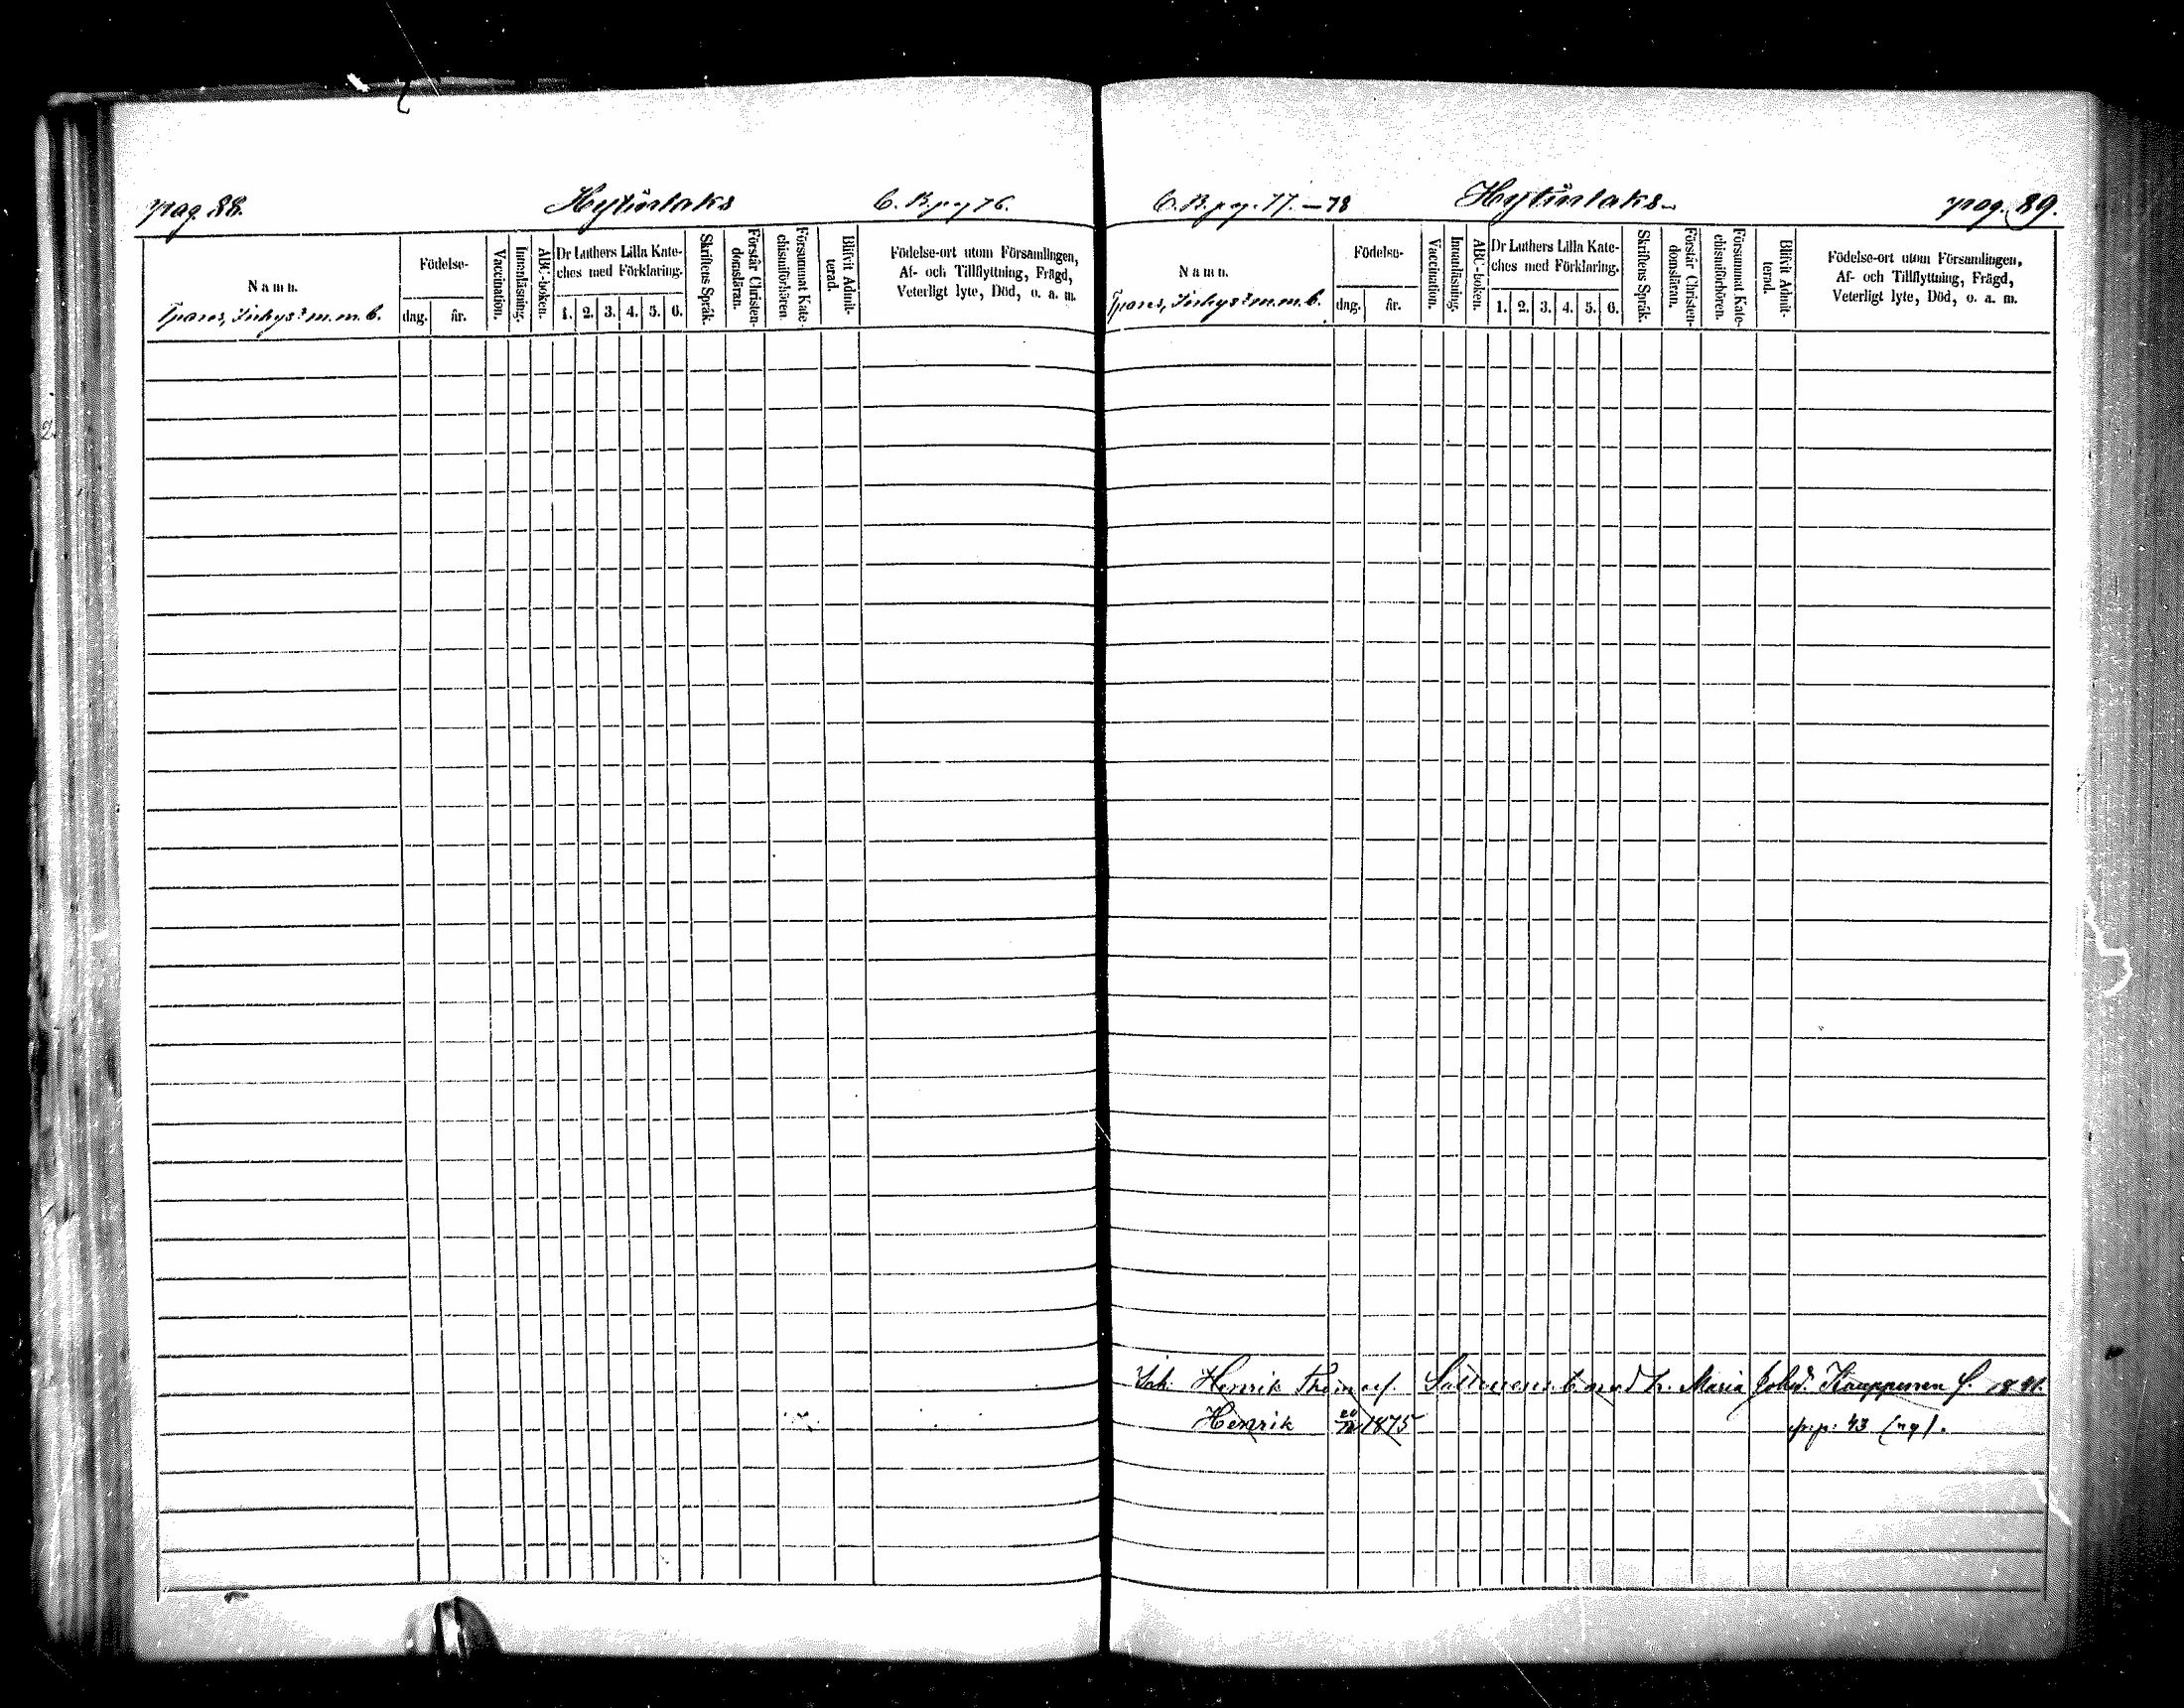 pag. 88. Hytönlaks C. B. pag 76.
Namn.
Tpares, Inhys: m.m.b.
Födelse-
dag. år.
Vaccination.
Innanläsning.
ABC-boken.
Dr Luthers Lilla Kate-
ches med Förklaring.
1. 2. 3. 4. 5. 6.
Skriftens Språk.
Förstår Christen-
domsläran.
Försummat Kate-
chismiförhören.
Blifvit Admit-
terad.
Födelse-ort utom Församlingen,
Af- och Tillflyttning, Frägd,
Veterligt lyte, Död, o. a. m.
C. B. pg. 77.-78 Hytönlaks pag. 89.
Namn.
Tpares, Inhys: m.m.b.
Födelse-
dag. år.
Vaccination.
Innanläsning.
ABC-boken.
Dr Luthers Lilla Kate-
ches med Förklaring.
1. 2. 3. 4. 5. 6.
Skriftens Språk.
Förstår Christen-
domsläran.
Försummat Kate-
chismiförhören.
Blifvit Admit-
terad.
Födelse-ort utom Församlingen,
Af- och Tillflyttning, Frägd,
Veterligt lyte, Död, o. a. m.
Inh: Henrik Maria Johsd. Kauppinen f. 1841.
Henrik 1875 43